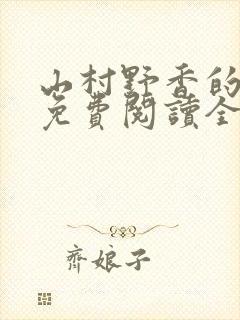 山村野香的
免費閱讀全
齊娘子